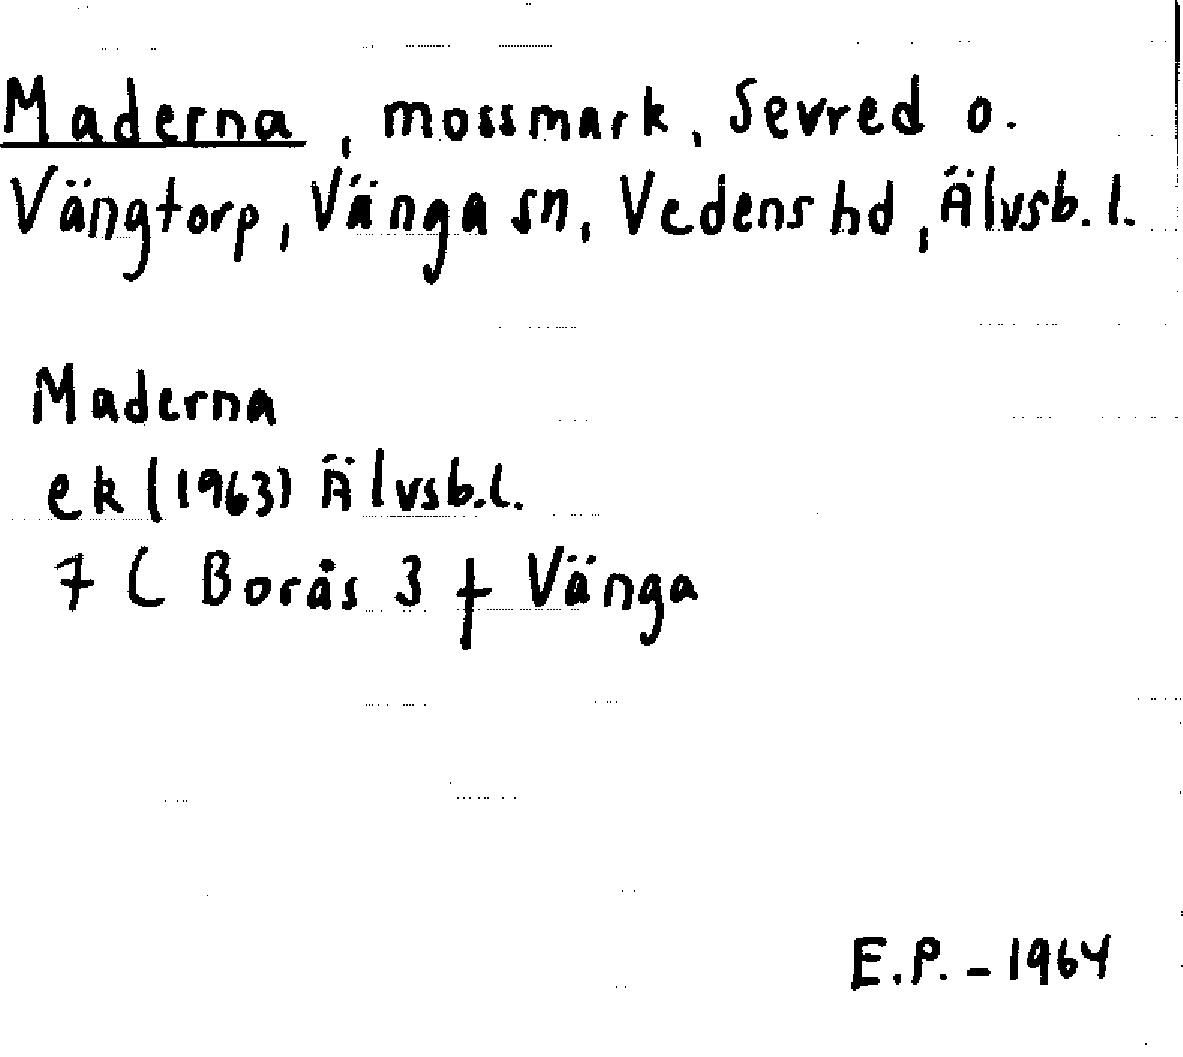 Maderna, mossmark, Sevred o.
Vängtorp, Vänga sn, Vedens hd, Älvsb. l.
Maderna
ek (1963) Älvsb. l.
7 C Borås 3 f Vänga
E.P. - 1964